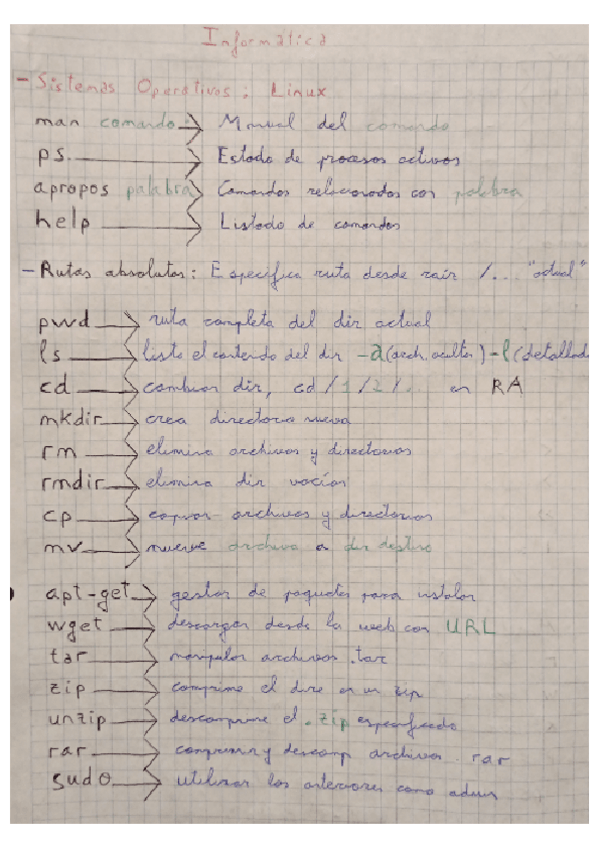 Informática
- Sistemas Operativos: Linux
man comando → Manual del comando
ps → Estado de procesos activos
apropos palabra → Comandos relacionados con palabra
help → Listado de comandos
- Rutas absolutas: Especifica ruta desde raíz /... "actual"
pwd → ruta completa del dir actual
ls → lista el contenido del dir -a (arch. ocultos) -l (detallada
cd → cambiar dir, cd /1/2/. en RA
mkdir → crea directorio nuevo
rm → elimina archivos y directorios
rmdir → elimina dir vacíos
cp → copiar archivos y directorios
mv → mueve archivo a dir destino
apt-get → gestor de paquetes para instalar
wget → descargar desde la web con URL
tar → manipular archivos .tar
zip → comprime el dire en un zip
unzip → descomprime el .zip especificado
rar → comprimir y descomp archivos .rar
sudo → utilizar los anteriores como admin